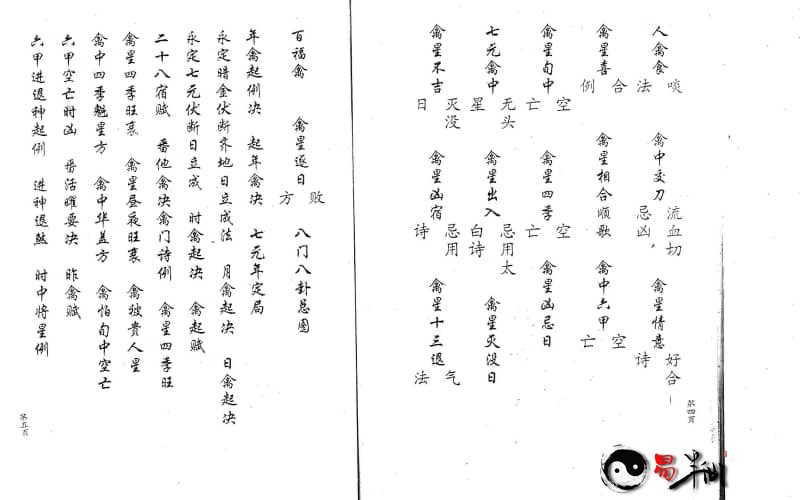 人禽食啖法 禽中交刀流血切忌凶, 禽星情意好合诗
禽星喜合例 禽星相合顺歌 禽中六甲空亡
禽星旬中空亡 禽星四季空亡 禽星凶忌日
七元禽中无头星 禽星出入忌用太白诗 禽星灭没日
禽星不吉灭没日 禽星凶宿忌用诗 禽星十三退气法
第四页
百福禽 禽星逐日败方 八门八卦总图
年禽起例决 起年禽决 七元年定局
永定暗金伏断齐地日立成法 月禽起决 日禽起决
永定七元伏断日立成 时禽起决 禽起赋
二十八宿赋 番他禽决禽门诗例 禽星四季旺
禽星四季旺衰 禽星昼夜旺衰 禽被贵人星
禽中四季魁星方 禽中华盖方 禽怕旬中空亡
六甲空亡时凶 番活曜要决 昨禽赋
六甲进退神起例 进神退煞 时中将星例
第五页
易半仙